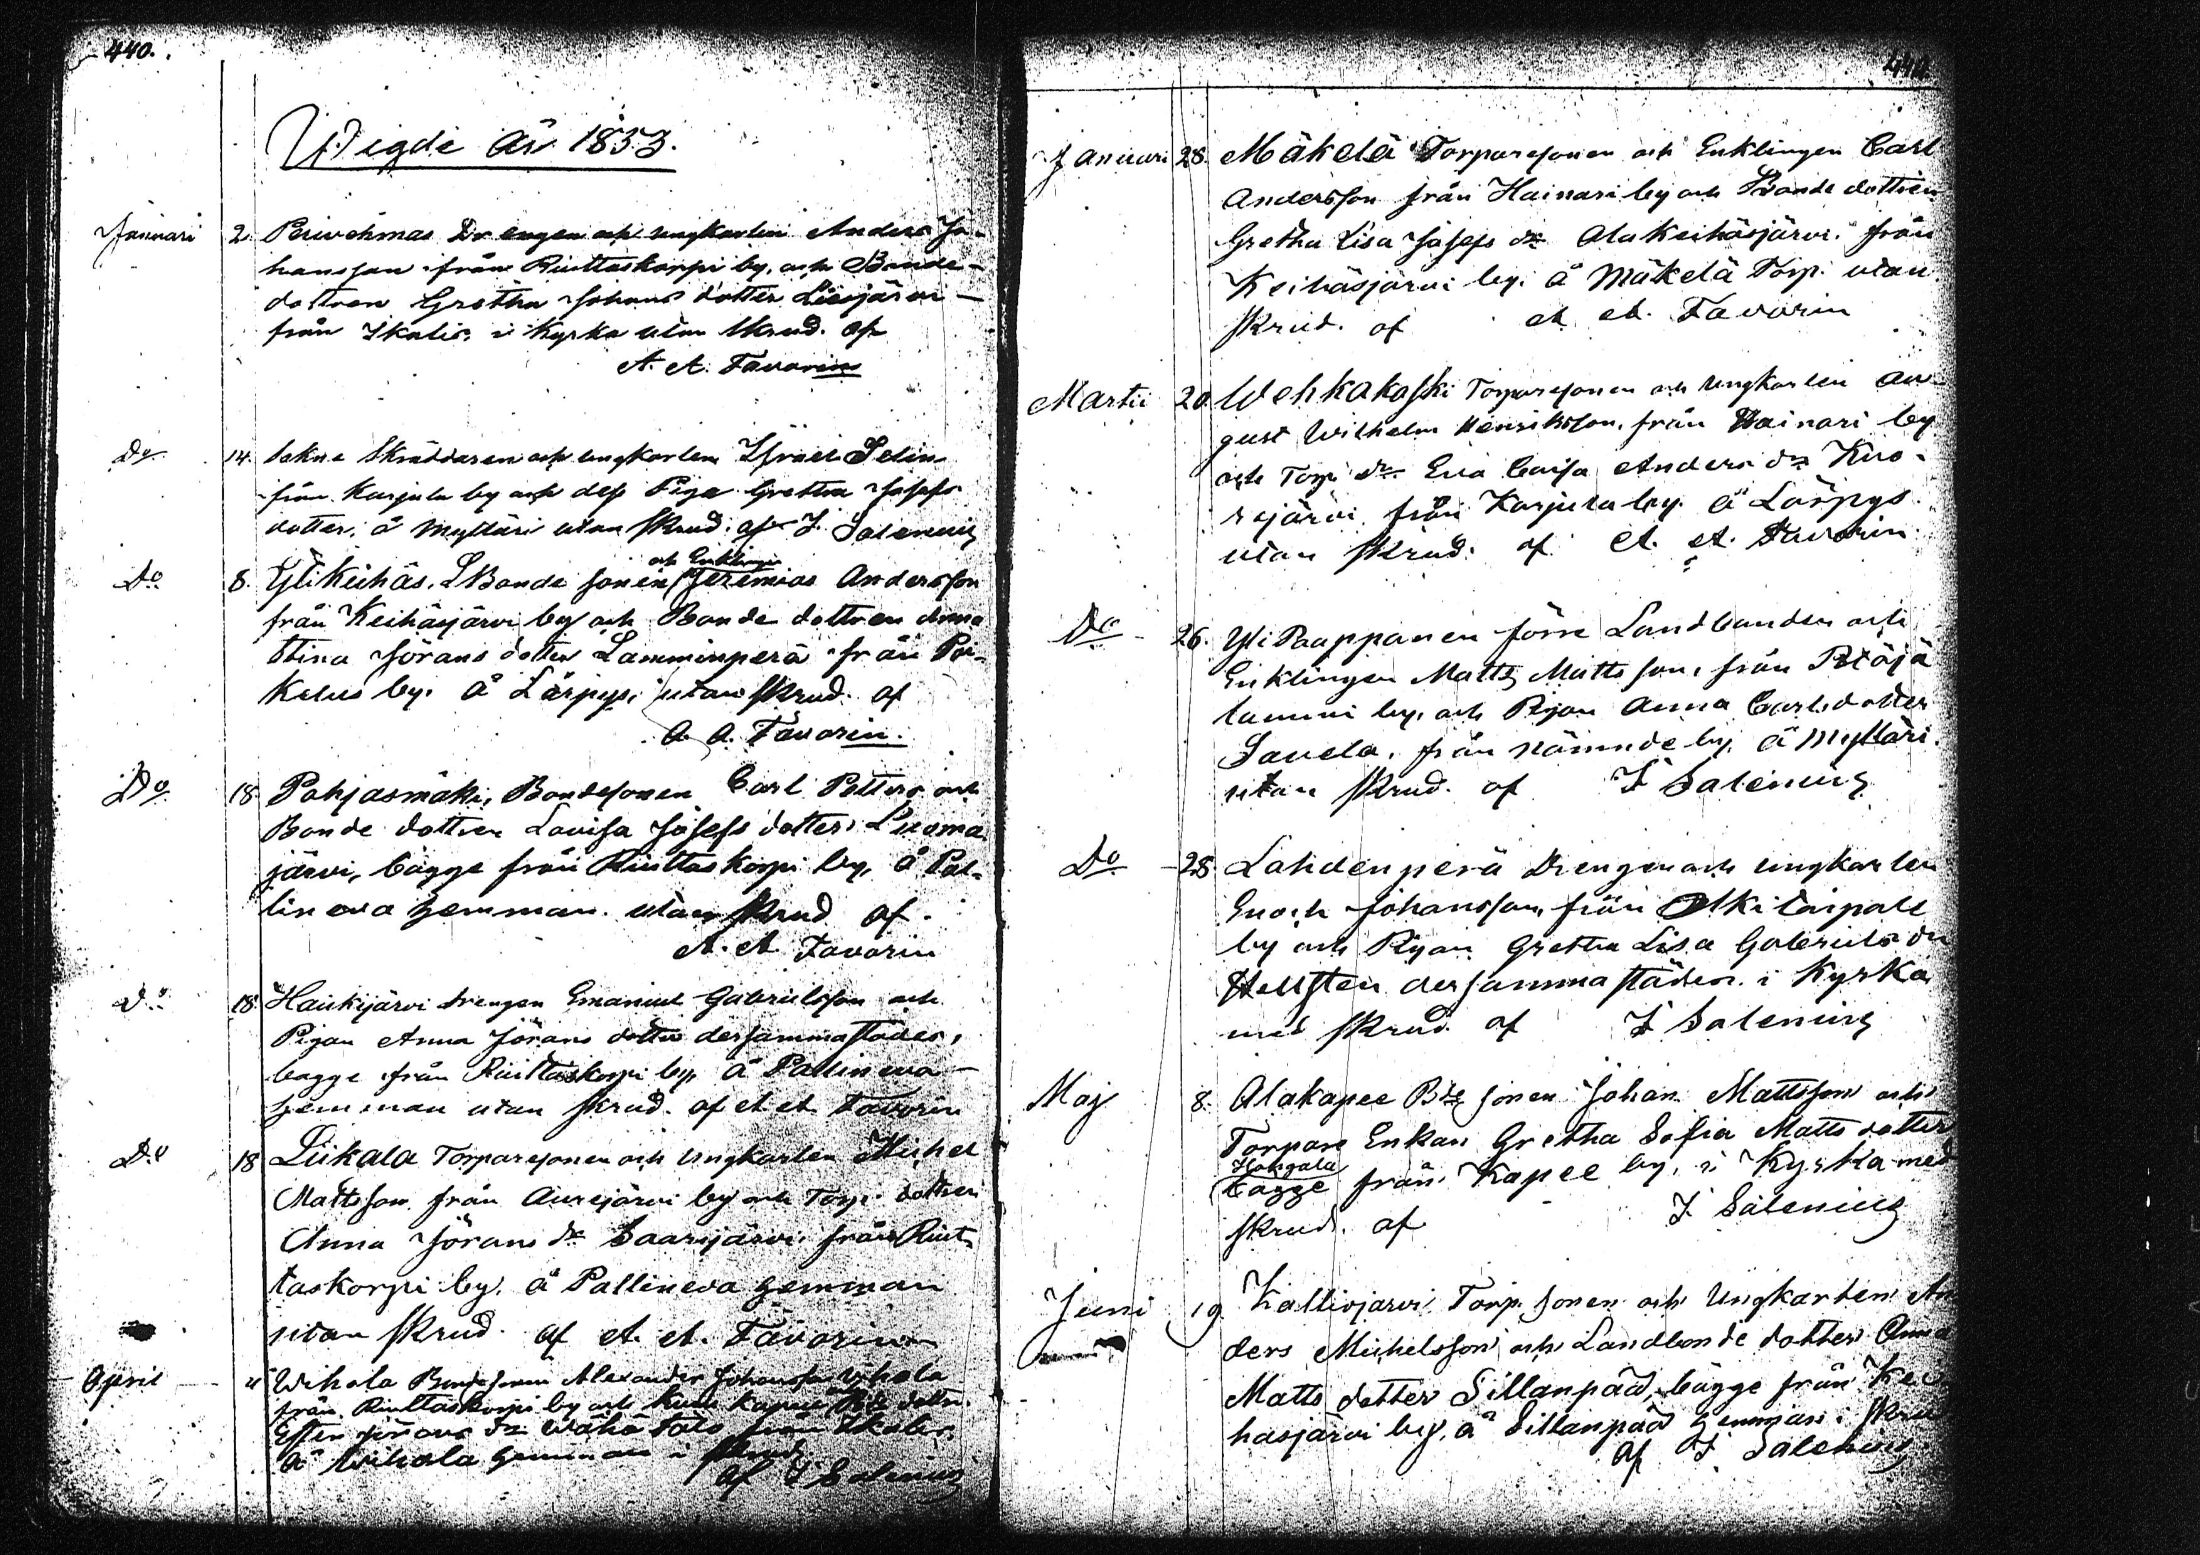 440.
Wigde År 1853.
Januari 2. Perivehmas Drengen och ungkarlen Anders Jo-
hansson från Riuttaskorpi by, och Bonde-
dottren Gretha Johans dotter Liesjärvi
från Ikalis, i Kyrka utan Skrud. af
A. A. Favorin
Do 14. Sokne Skräddaren och ungkarlen Israel Selin
från Karjula by och dess Piga Gretha Josefs
dotter, å Mylläri utan Skrud. af J. Salenius
och Enklingen
Do 8. Yli Keihäs, LBonde sonen Jeremias Andersson
från Keihäsjärvi by och Bonde dottren Anna
Stina Jörans dotter Lamminperä från Par-
kelus by. å Lärpys, utan Skrud. af
A. A. Favorin.
Do 18. Pohjasmäki, Bondesonen Carl Petters och
Bonde dottren Lovisa Josefs dotter Luoma
järvi, bägge från Riuttaskorpi by, å Pal-
lineva hemman. utan Skrud af.
A. A. Favorin
Do 18. Haukijärvi drengen Emanuel Gabrielsson och
Pigan Anna Jörans dotter dersammastädes,
bägge från Riuttaskorpi by, å Pallineva
hemman utan Skrud. af A A Favorin
Do 18 Liikala Torparesonen och Ungkarlen Michel
Mattsson från Aurejärvi by och Torp. dottren
Anna Jörans dr Saarijärvi. från Riut-
taskorpi by. å Pallineva hemman
utan Skrud. af A. A. Favorin
April " Wihola Bondesonen Alexander Johansson Wihola
från Riuttaskorpi by och Bde dottr.
Ester Jörans dr Wähä från Ikalis.
å Wihola hemman i Skrud
af J Salenius
Januari 28. Mäkelä Torparesonen och Enklingen Carl
Andersson från Hainari by och Bonde dottren
Gretha Lisa Josefs dr Alakeihäsjärvi. från
Keihäsjärvi by. å Mäkelä Torp. utan
Skrud. af A A. Favorin
Martii 20. Wehkakoski Torparesonen och Ungkarlen Au-
gust Wilhelm Henriksson, från Hainari by
och Torp. dr Eva Caisa Anders dr Kuo-
rejärvi från Karjula by. å Lärpys
utan Skrud. af A. A. Favorin
Do 26. Yli Paappanen förre Landbonden och
Enklingen Matts Mattsson, från Poikja
lammi by, och Pigan Anna Carls dotter
Savela, från nämnde by, å Mylläri.
utan Skrud. af J Salenius
Do 28. Lahdenperä Drengen och ungkarlen
Enoch Johansson, från Alkitaipale
by och Pigan Gretha Lisa Gabriels dr
Hellsten dersammastädes i Kyrka
med Skrud. af J Salenius
Maj 8. Alakapee Bde sonen Johan Mattsson och
Torpare Enkan Gretha Sofia Matts dotter
bägge från Kapee by, i Kyrka med
Skrud. af J Salenius
Juni 19. Kalliojärvi Torp. sonen och Ungkarlen An
ders Michelsson och Landbonde dotter Anna
Matts dotter Sillanpää, bägge från Kei
häsjärvi by, å Sillanpää hemman i Skrud
af J Salenius